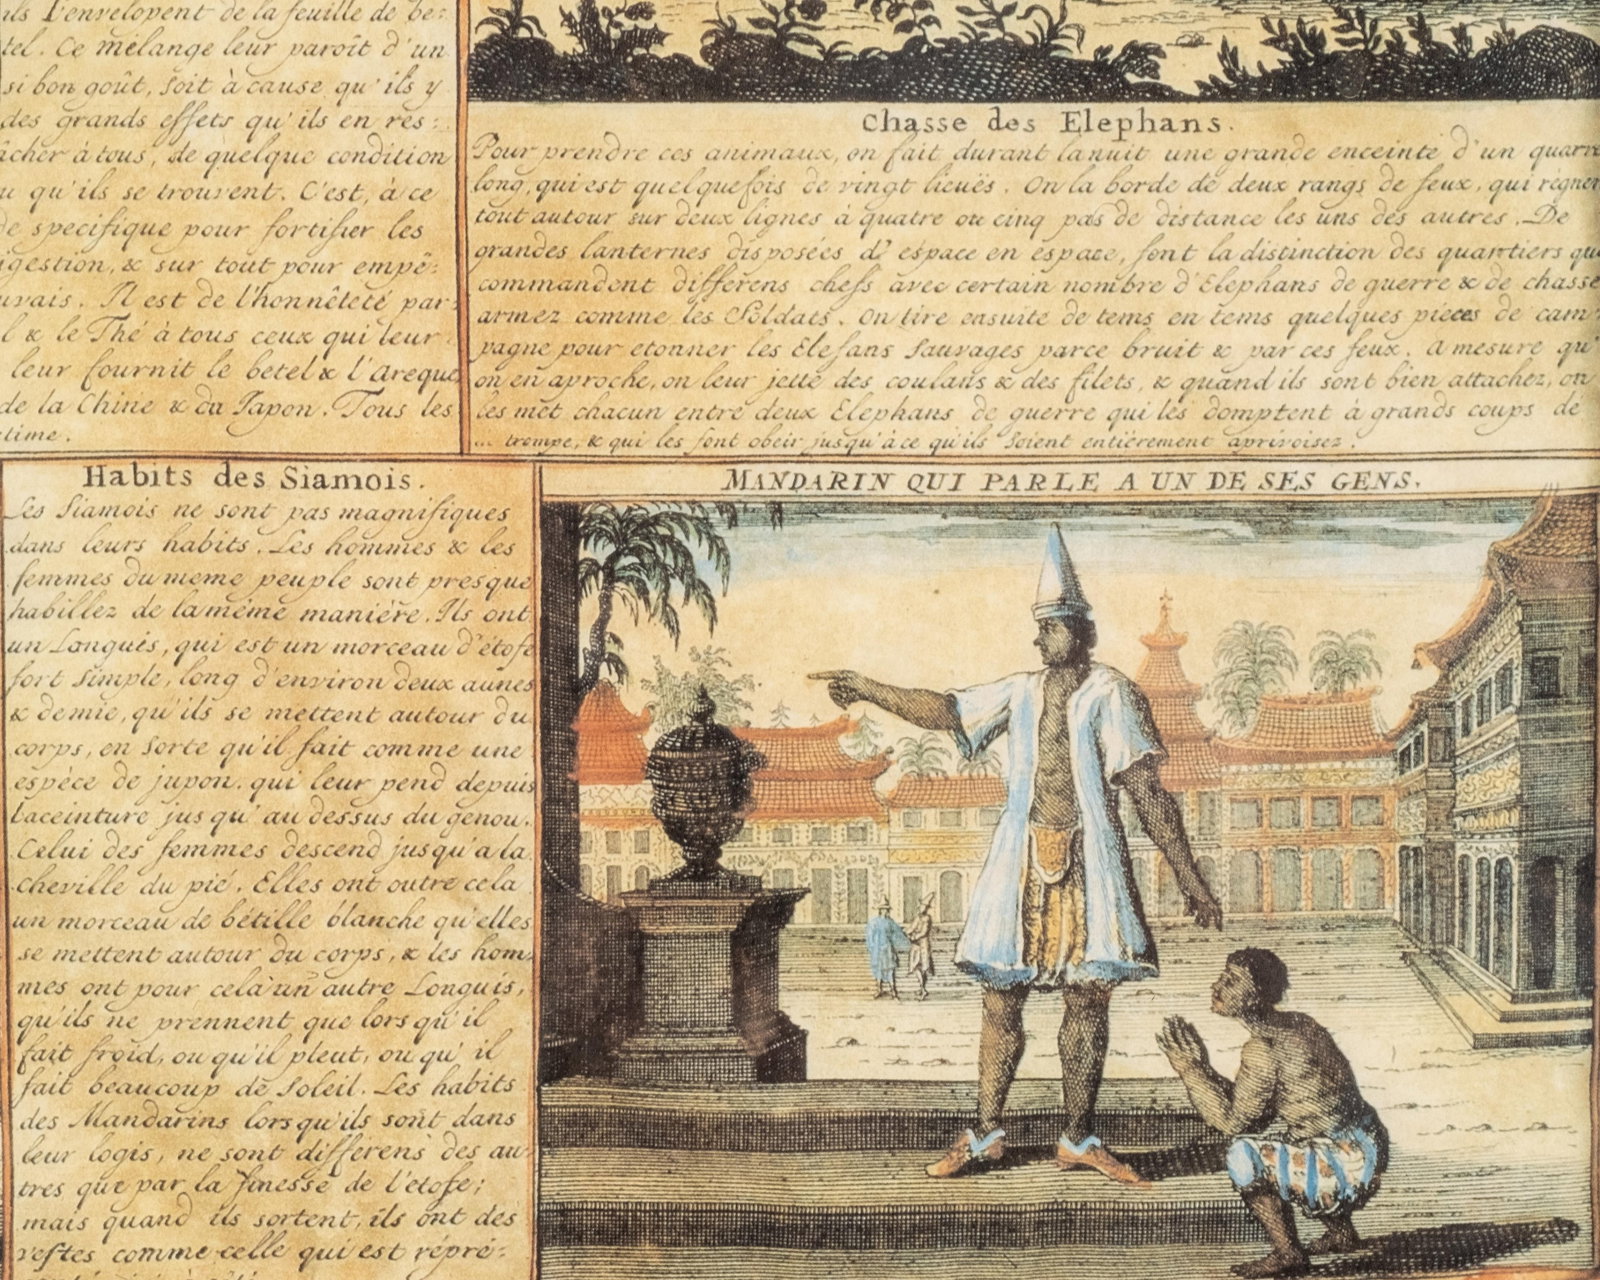 ils l'envelopent de la feuille de be:
tel. Ce mélange leur paroît d'un
si bon goût, soit à cause qu'ils y
des grands effets qu'ils en res:
âcher à tous, de quelque condition
u qu'ils se trouvent. C'est, à ce
de specifique pour fortifier les
igestion, & sur tout pour empê:
uvais. Il est de l'honnêteté par:
l & le Thé à tous ceux qui leur
leur fournit le betel & l'Areque
de la Chine & du Japon. Tous les
time.
Chasse des Elephans.
Pour prendre ces animaux, on fait durant la nuit une grande enceinte d'un quarré
long, qui est quelquefois de vingt lieuës. On la borde de deux rangs de feux, qui règnen
tout autour sur deux lignes à quatre ou cinq pas de distance les uns des autres. De
grandes lanternes disposées d'espace en espace, font la distinction des quartiers que
commandent differens chefs avec certain nombre d'Elephans de guerre & de chasse
armez comme les Soldats. On tire ensuite de tems en tems quelques pièces de cam:
pagne pour etonner les Elefans sauvages par ce bruit & par ces feux. A mesure qu'
on en aproche, on leur jette des coulans & des filets, & quand ils sont bien attachez, on
les met chacun entre deux Elephans de guerre qui les domptent à grands coups de
trompe, & qui les font obeir jusqu'à ce qu'ils soient entiérement aprivoisez.
Habits des Siamois.
Les Siamois ne sont pas magnifiques
dans leurs habits. Les hommes & les
femmes du meme peuple sont presque
habillez de la même maniére. Ils ont
un Longuis, qui est un morceau d'étofe
fort simple, long d'environ deux aunes
& demie, qu'ils se mettent autour du
corps, en sorte qu'il fait comme une
espéce de jupon, qui leur pend depuis
la ceinture jusqu'au dessus du genou.
Celui des femmes descend jusqu'a la
cheville du pié. Elles ont outre cela
un morceau de bétille blanche qu'elles
se mettent autour du corps, & les hom:
mes ont pour cela un autre Longuis,
qu'ils ne prennent que lors qu'il
fait froid, ou qu'il pleut, ou qu'il
fait beaucoup de Soleil. Les habits
des Mandarins lors qu'ils sont dans
leur logis, ne sont différens des au:
tres que par la finesse de l'étofe;
mais quand ils sortent, ils ont des
vestes comme celle qui est répré:
MANDARIN QUI PARLE A UN DE SES GENS.